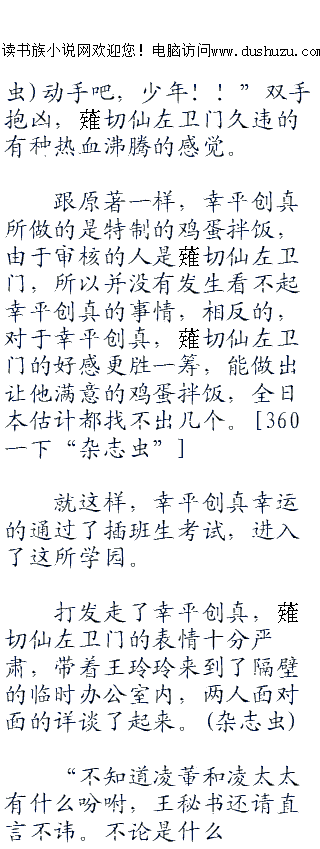 读书族小说网欢迎您！电脑访问www.dushuzu.com
虫)动手吧，少年！！”双手
抱凶，薙切仙左卫门久违的
有种热血沸腾的感觉。
跟原著一样，幸平创真
所做的是特制的鸡蛋拌饭，
由于审核的人是薙切仙左卫
门，所以并没有发生看不起
幸平创真的事情，相反的，
对于幸平创真，薙切仙左卫
门的好感更胜一筹，能做出
让他满意的鸡蛋拌饭，全日
本估计都找不出几个。[360
一下“杂志虫”]
就这样，幸平创真幸运
的通过了插班生考试，进入
了这所学园。
打发走了幸平创真，薙
切仙左卫门的表情十分严
肃，带着王玲玲来到了隔壁
的临时办公室内，两人面对
面的详谈了起来。(杂志虫)
“不知道凌董和凌太太
有什么吩咐，王秘书还请直
言不讳。不论是什么